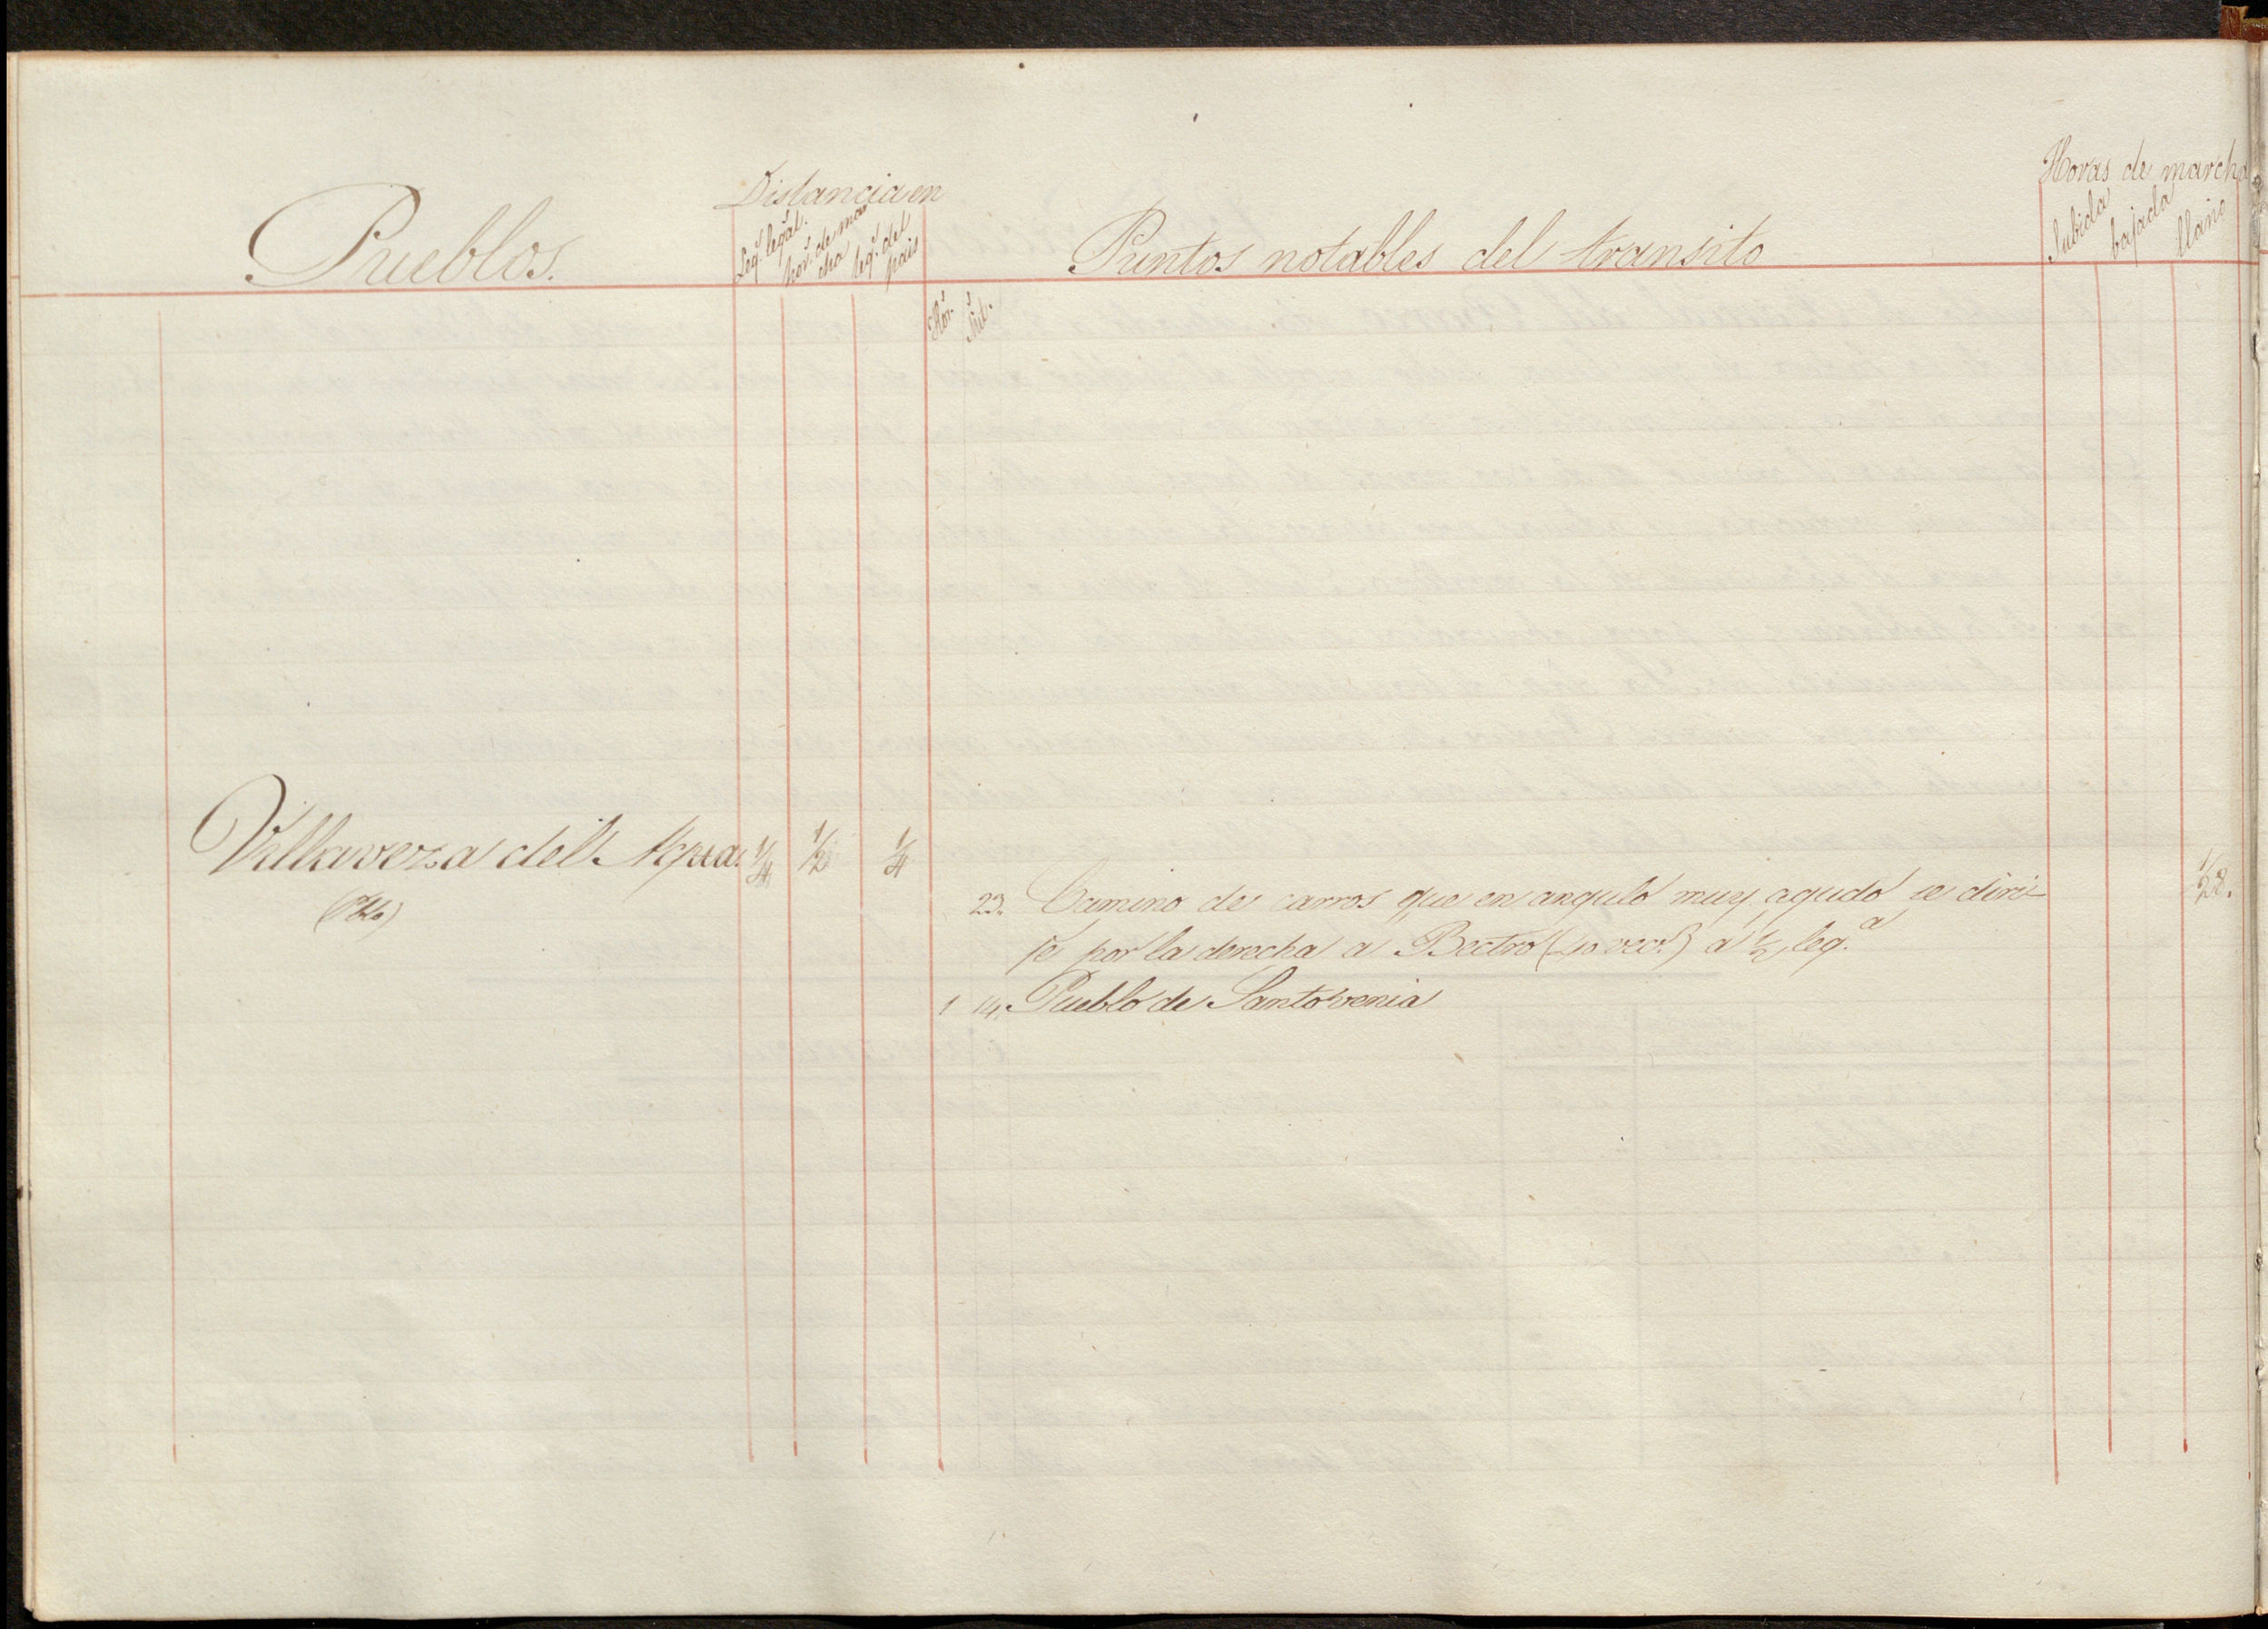 Distancia en
Horas de marcha
Pueblos.
Leg.s legal.s
hor.s de mar
cha
leg.s del
pais
Puntos notables del transito
Subida
bajada
llano
Hor.s
Mil.s
Villaveza del Agua. 1/4 1/2 1/4
23. Camino de carros que en angulo muy agudo se diri
je por la derecha a (40 vec.s) a 1/2 leg.a
1 14. Pueblo de Santovenia